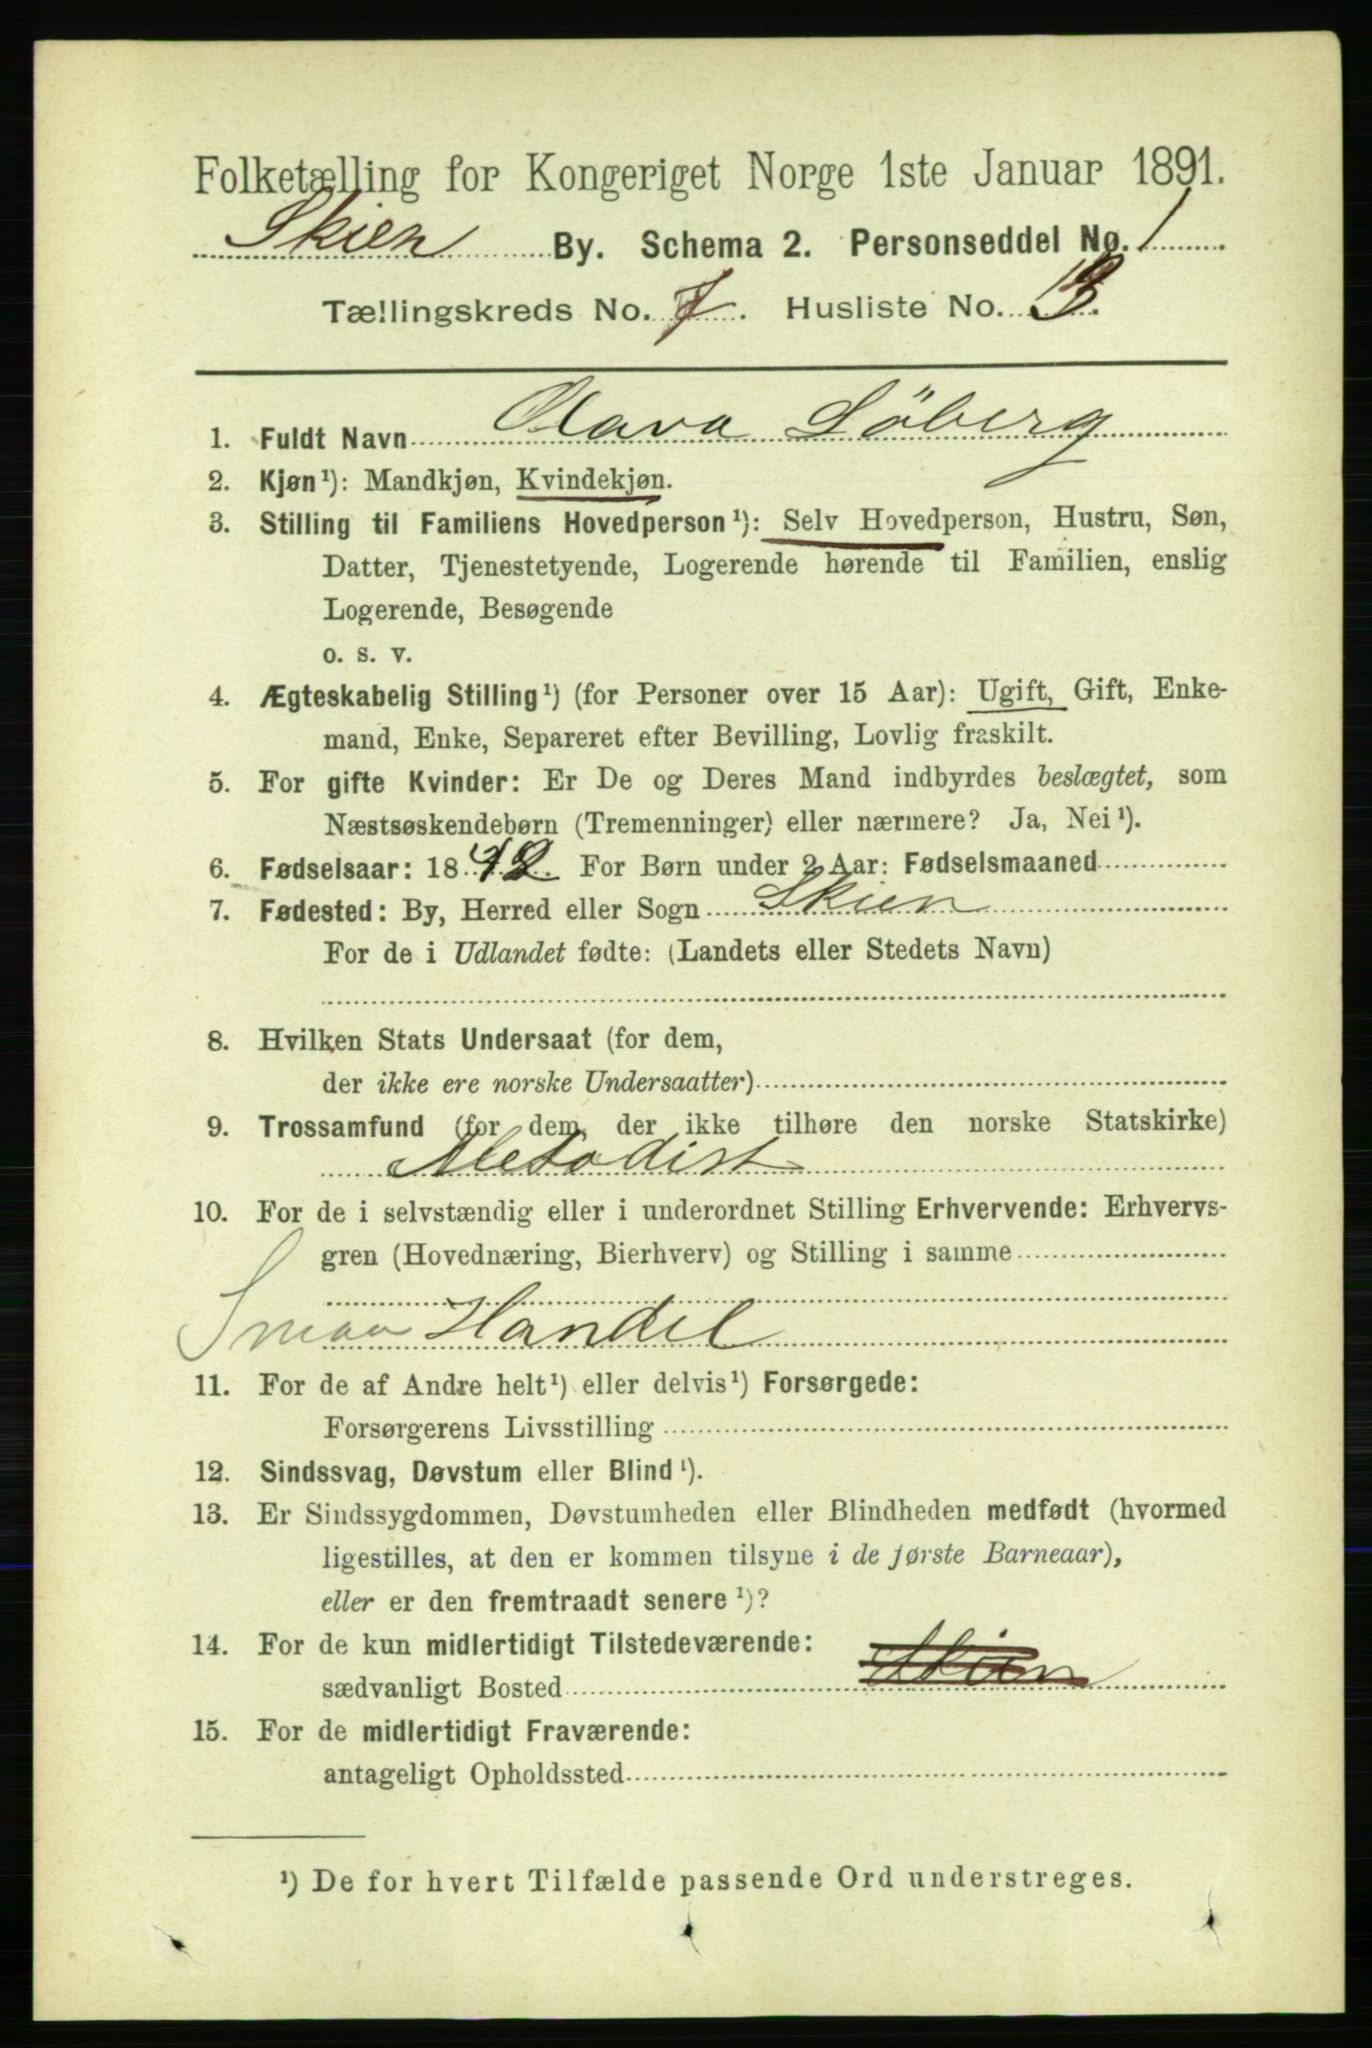 Folketælling for Kongeriget Norge 1ste Januar 1891.
Skien By. Schema 2. Personseddel No. 1
Tællingskreds No. 7. Husliste No. 13.
1. Fuldt Navn Olava Löberg
2. Kjøn¹): Mandkjøn, Kvindekjøn.
3. Stilling til Familiens Hovedperson¹): Selv Hovedperson, Hustru, Søn,
Datter, Tjenestetyende, Logerende hørende til Familien, enslig
Logerende, Besøgende
o. s. v.
4. Ægteskabelig Stilling¹) (for Personer over 15 Aar): Ugift, Gift, Enke-
mand, Enke, Separeret efter Bevilling, Lovlig fraskilt.
5. For gifte Kvinder: Er De og Deres Mand indbyrdes beslægtet, som
Næstsøskendebørn (Tremenninger) eller nærmere? Ja, Nei¹).
6. Fødselsaar: 1842. For Børn under 2 Aar: Fødselsmaaned
7. Fødested: By, Herred eller Sogn Skien
For de i Udlandet fødte: (Landets eller Stedets Navn)
8. Hvilken Stats Undersaat (for dem,
der ikke ere norske Undersaatter)
9. Trossamfund (for dem, der ikke tilhøre den norske Statskirke)
Metodist
10. For de i selvstændig eller i underordnet Stilling Erhvervende: Erhvervs-
gren (Hovednæring, Bierhverv) og Stilling i samme
Smaa Handel
11. For de af Andre helt¹) eller delvis¹) Forsørgede:
Forsørgerens Livsstilling
12. Sindssvag, Døvstum eller Blind¹).
13. Er Sindssygdommen, Døvstumheden eller Blindheden medfødt (hvormed
ligestilles, at den er kommen tilsyne i de første Barneaar),
eller er den fremtraadt senere¹)?
14. For de kun midlertidigt Tilstedeværende:
sædvanligt Bosted Skien
15. For de midlertidigt Fraværende:
antageligt Opholdssted
¹) De for hvert Tilfælde passende Ord understreges.